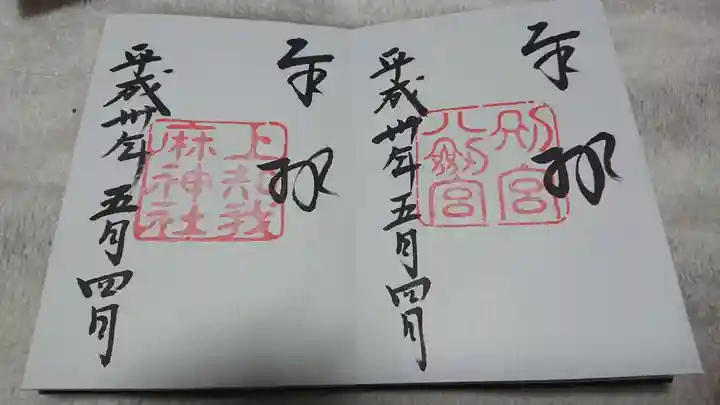 奉拝
別宮
八剱宮
平成卅年五月四日
奉拝
上知我
麻神社
平成卅年五月四日